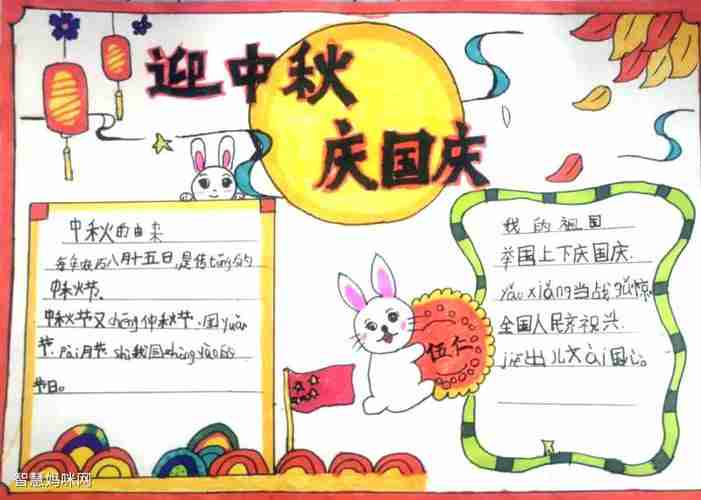 迎中秋
庆国庆
中秋的由来
每年农历八月十五日,是传tǒng的
中秋节。
中秋节又chēng仲秋节、团yuán
节、pài月节、shì我国zhòng yào的
节日。
我的祖国
举国上下庆国庆.
yáo xiǎng当战
全国人民齐祝兴.
jié出儿女ài国心。
伍仁
智慧妈咪网